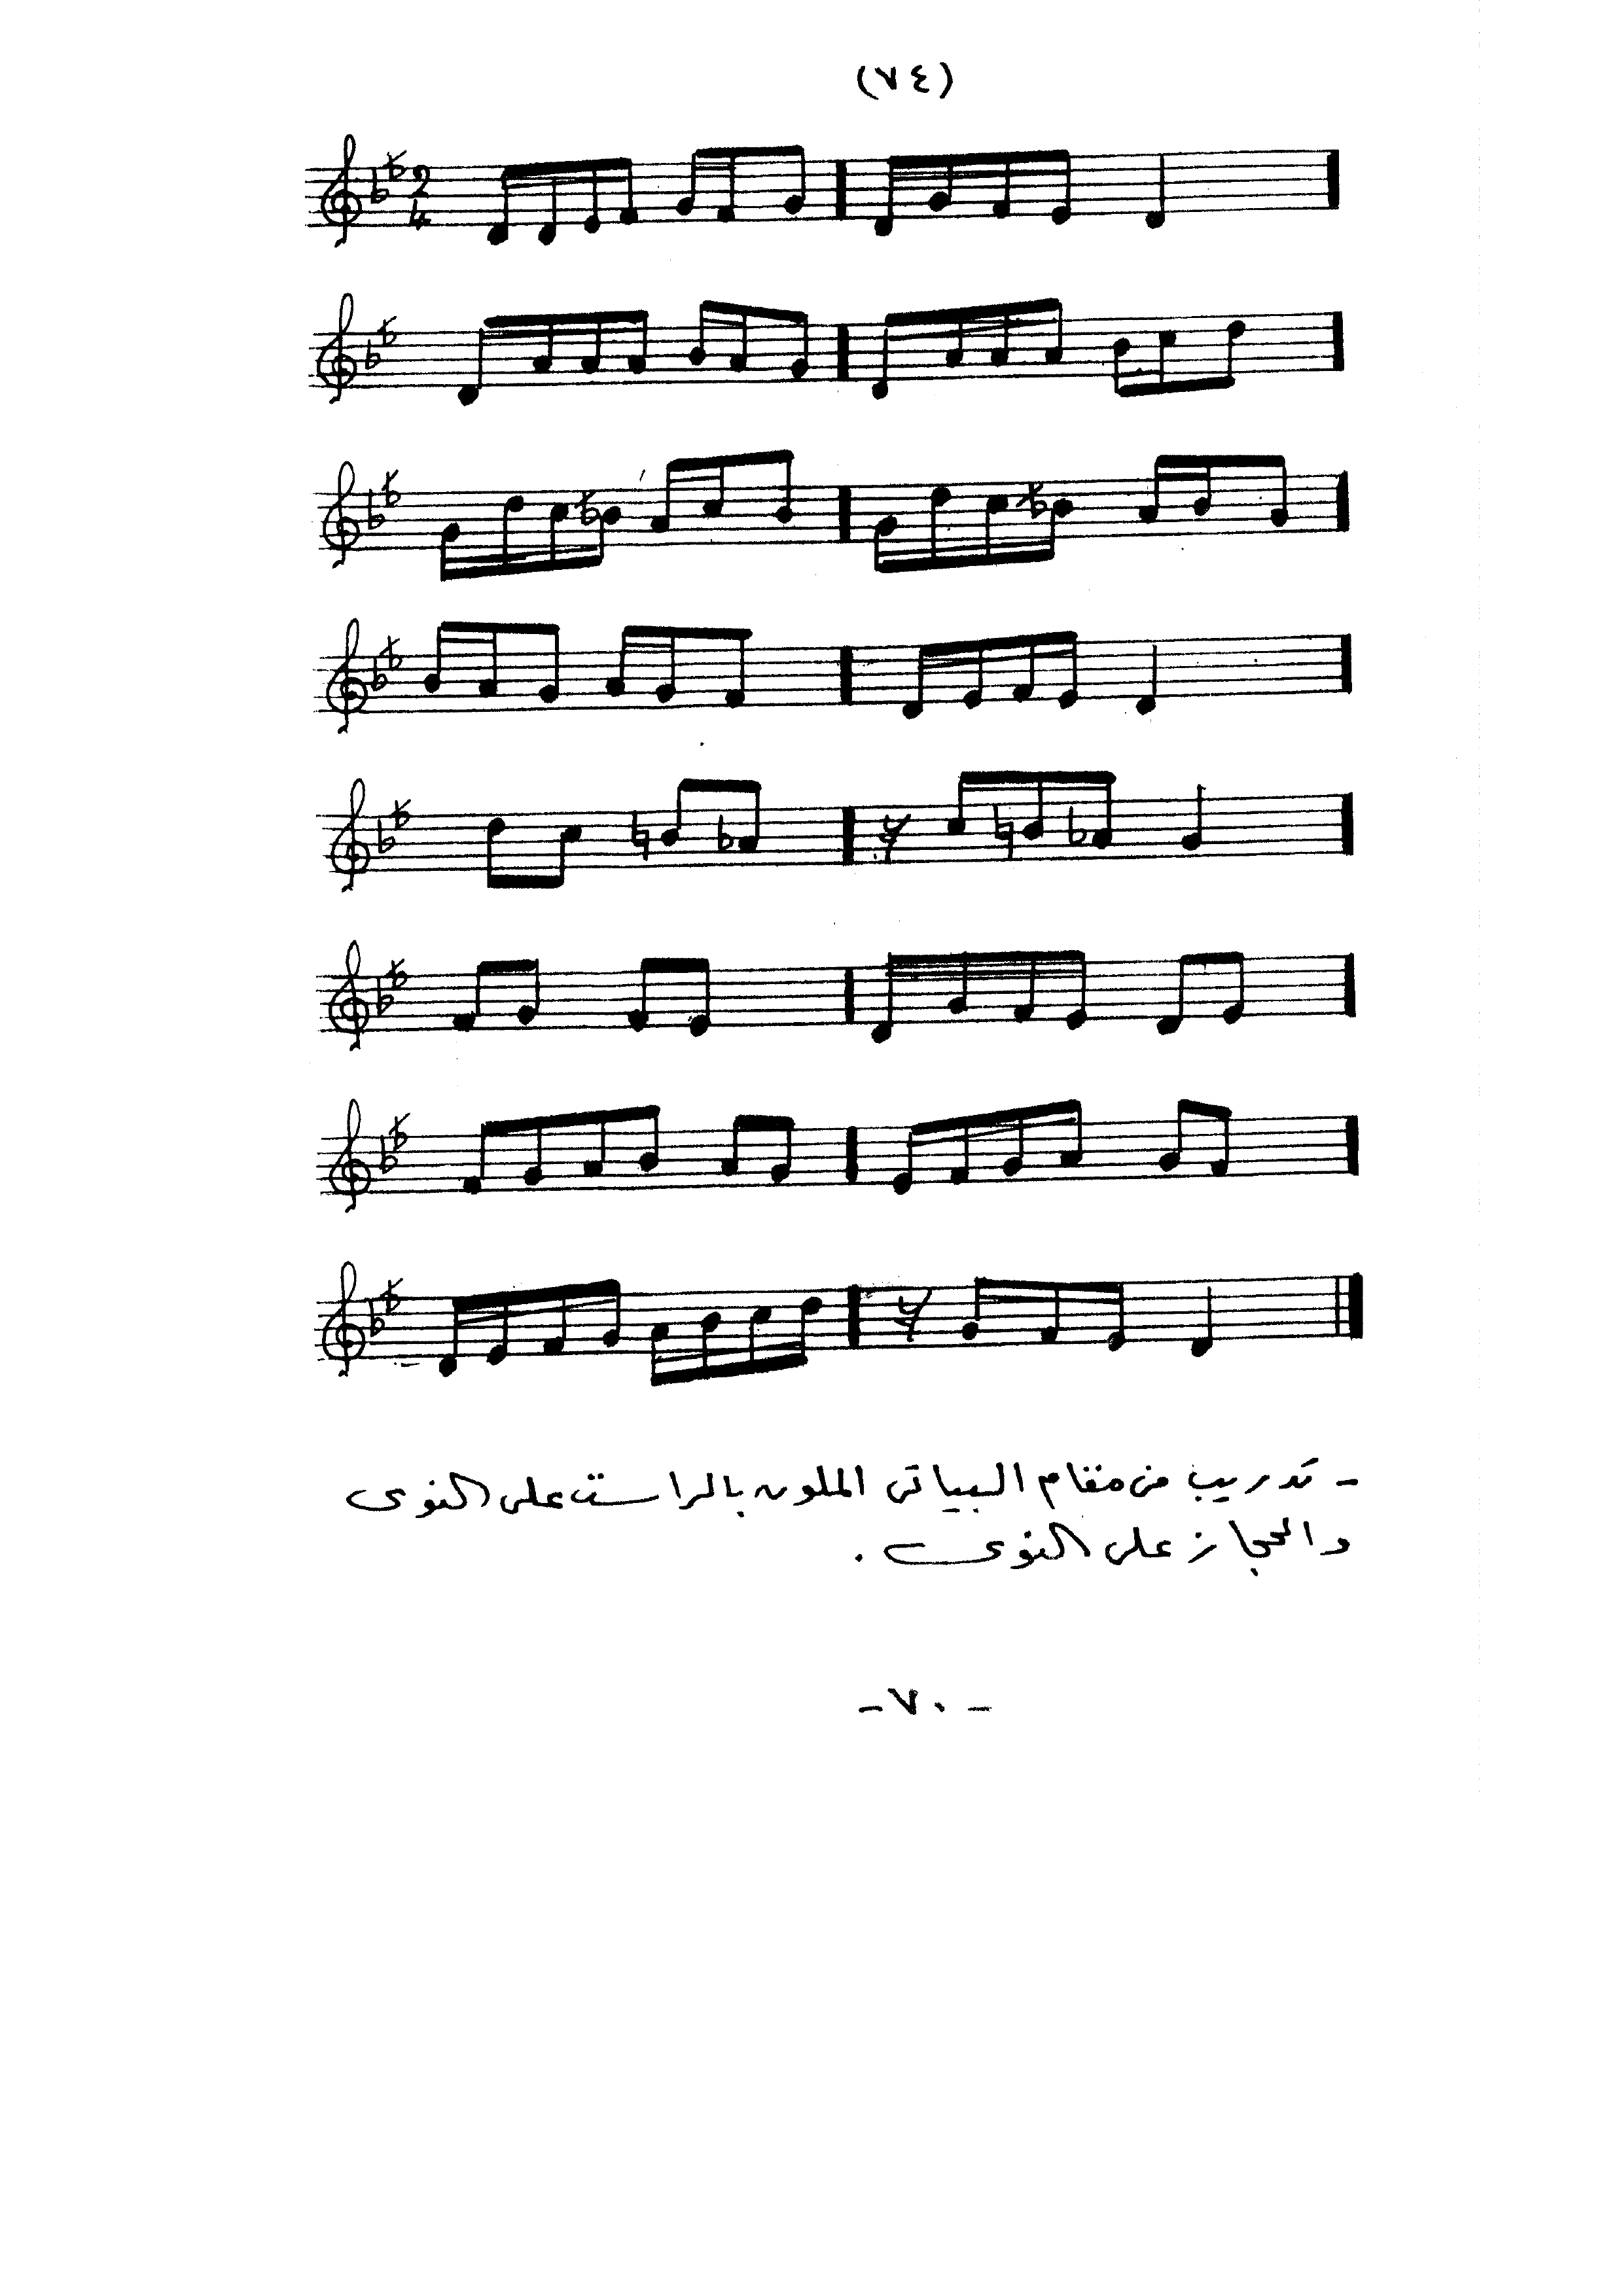 (٧٤)
2
4
- تدريب من مقام البياتى الملون بالراست على النوى
والحجاز على النوى .
- ٧٠ -